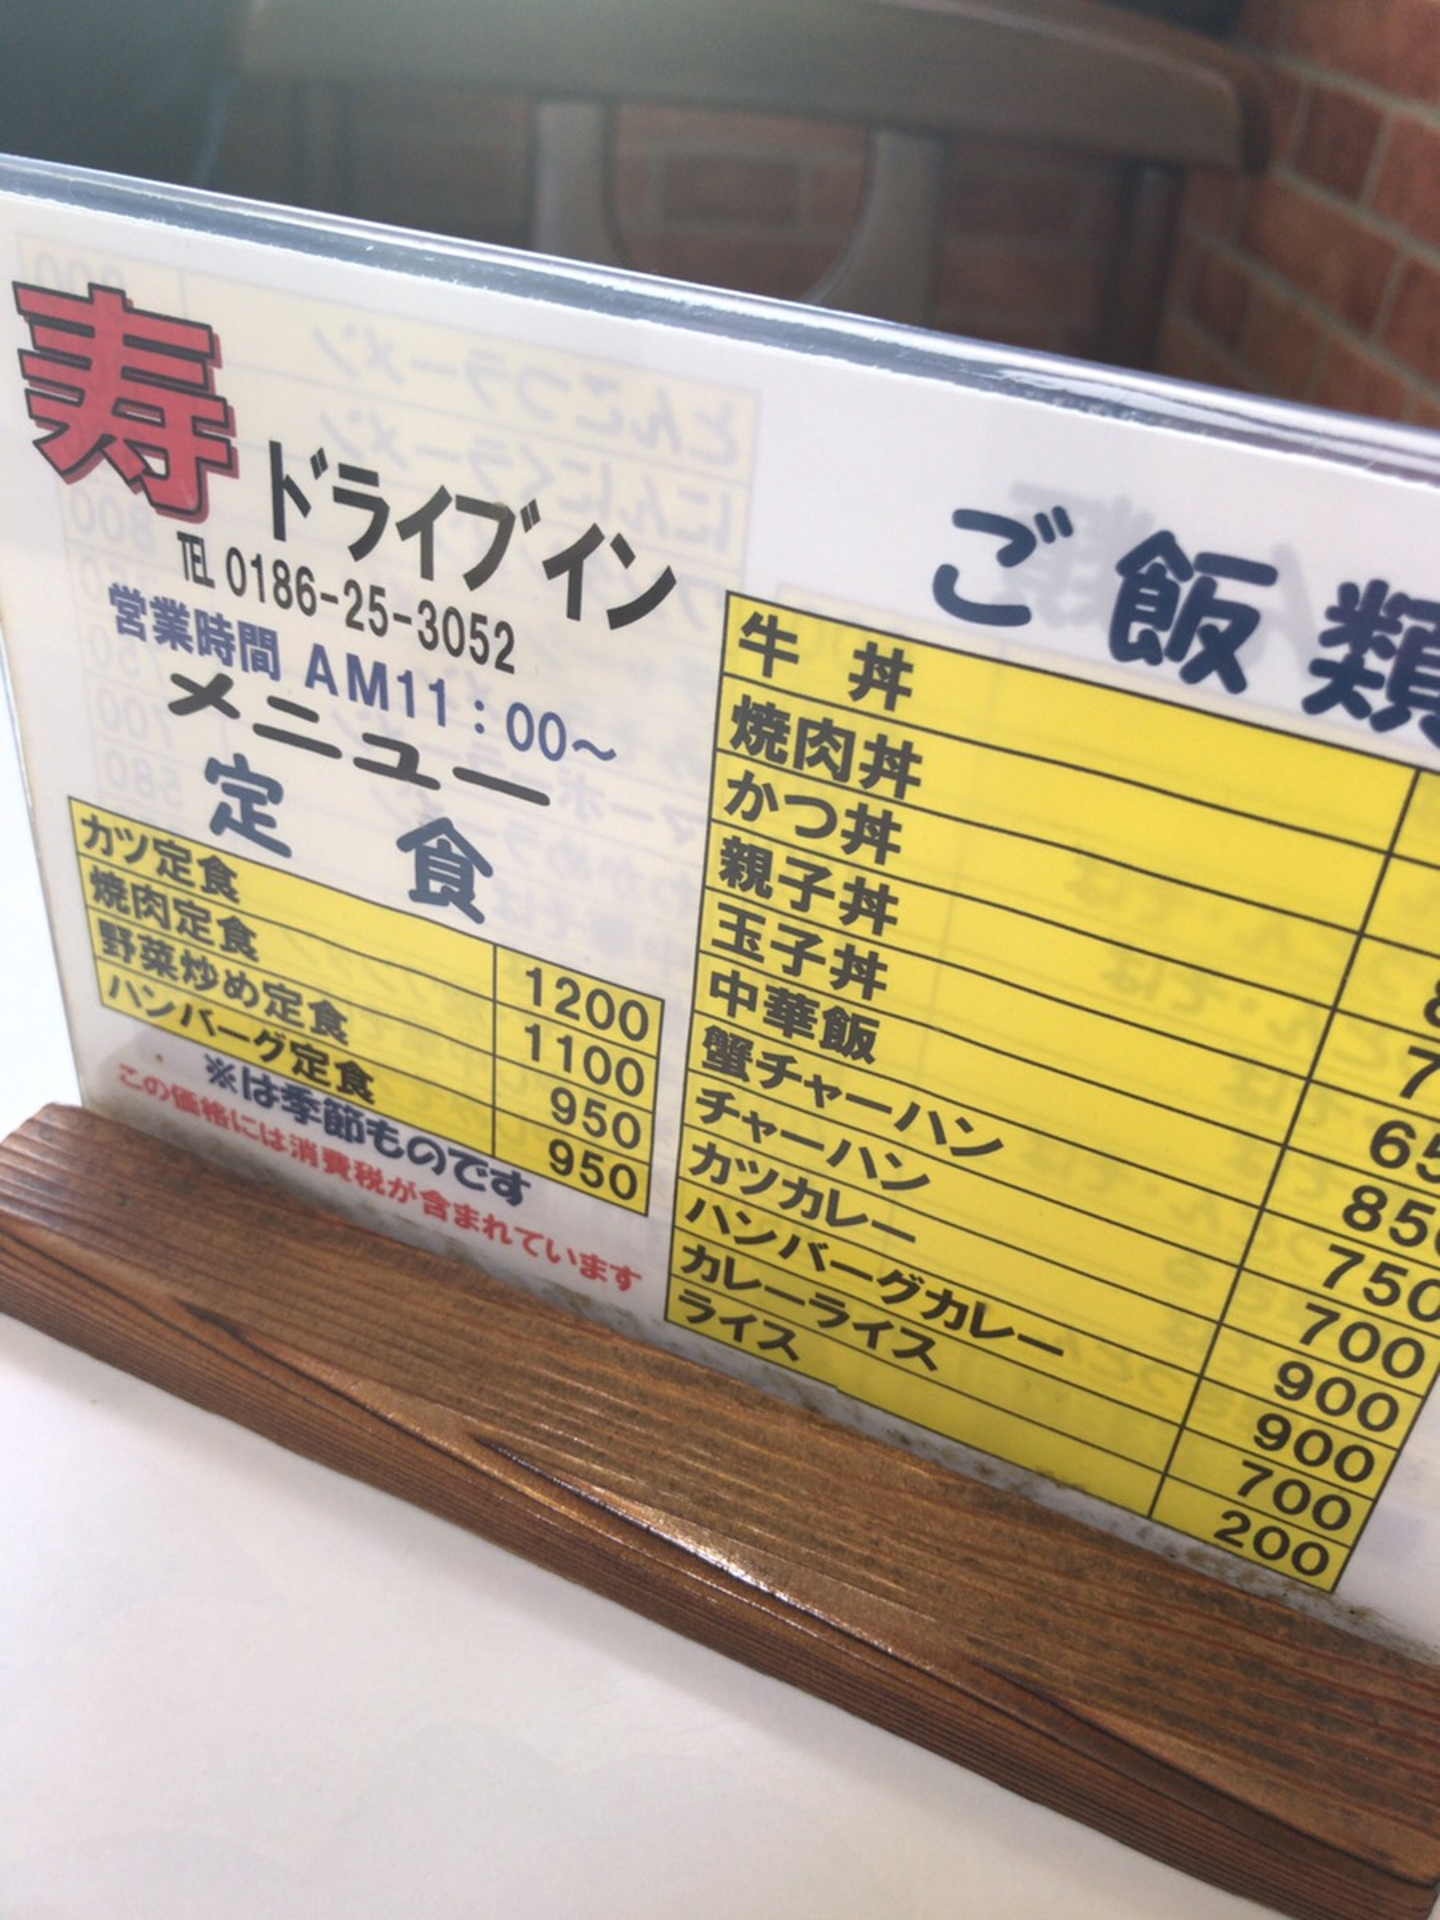 寿ドライブイン
TEL 0186-25-3052
営業時間 AM11：00～
メニュー
定 食
カツ定食 1200
焼肉定食 1100
野菜炒め定食 950
ハンバーグ定食 950
※は季節ものです
この価格には消費税が含まれています
ご飯類
牛 丼
焼肉丼
かつ丼
親子丼
玉子丼
中華飯 850
蟹チャーハン 750
チャーハン 700
カツカレー 900
ハンバーグカレー 900
カレーライス 700
ライス 200